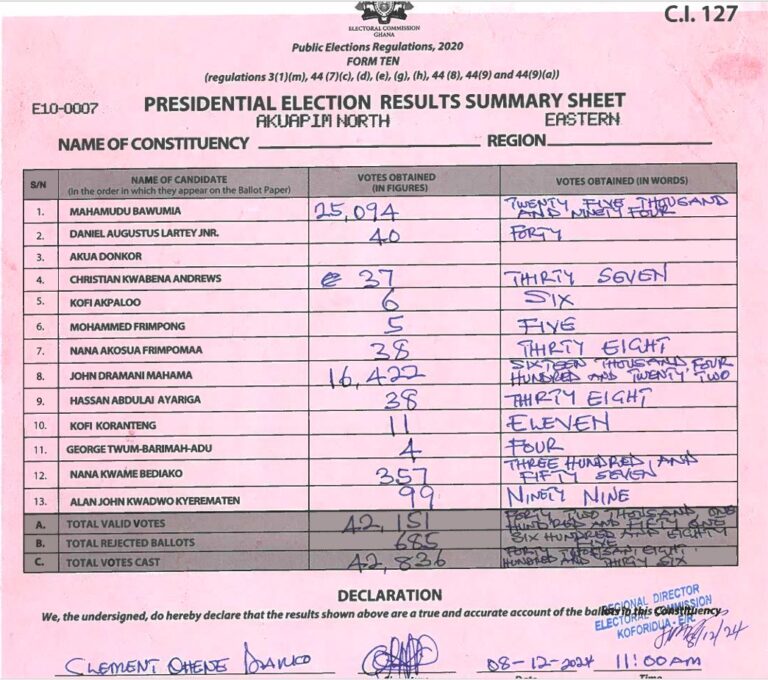 C.I. 127
ELECTORAL COMMISSION
GHANA
Public Elections Regulations, 2020
FORM TEN
(regulations 3(1)(m), 44 (7)(c), (d), (e), (g), (h), 44 (8), 44(9) and 44(9)(a))
E10-0007 PRESIDENTIAL ELECTION RESULTS SUMMARY SHEET
AKUAPIM NORTH EASTERN
NAME OF CONSTITUENCY REGION
S/N NAME OF CANDIDATE (In the order in which they appear on the Ballot Paper) VOTES OBTAINED (IN FIGURES) VOTES OBTAINED (IN WORDS)
1. MAHAMUDU BAWUMIA 25,094 TWENTY FIVE THOUSAND AND NINETY FOUR
2. DANIEL AUGUSTUS LARTEY JNR. 40 FORTY
3. AKUA DONKOR
4. CHRISTIAN KWABENA ANDREWS 37 THIRTY SEVEN
5. KOFI AKPALOO 6 SIX
6. MOHAMMED FRIMPONG 5 FIVE
7. NANA AKOSUA FRIMPOMAA 38 THIRTY EIGHT
8. JOHN DRAMANI MAHAMA 16,422 SIXTEEN THOUSAND, FOUR HUNDRED AND TWENTY TWO
9. HASSAN ABDULAI AYARIGA 38 THIRTY EIGHT
10. KOFI KORANTENG 11 ELEVEN
11. GEORGE TWUM-BARIMAH-ADU 4 FOUR
12. NANA KWAME BEDIAKO 357 THREE HUNDRED AND FIFTY SEVEN
13. ALAN JOHN KWADWO KYEREMATEN 99 NINETY NINE
A. TOTAL VALID VOTES 42,151 FORTY TWO THOUSAND, ONE HUNDRED AND FIFTY ONE
B. TOTAL REJECTED BALLOTS 685 SIX HUNDRED AND EIGHTY FIVE
C. TOTAL VOTES CAST 42,836 FORTY THOUSAND, EIGHT HUNDRED AND THIRTY SIX
DECLARATION
We, the undersigned, do hereby declare that the results shown above are a true and accurate account of the ballots in this Constituency
REGIONAL DIRECTOR
ELECTORAL COMMISSION
KOFORIDUA - E/R
8/12/24
CLEMENT OHENE 08-12-2024 11:00AM